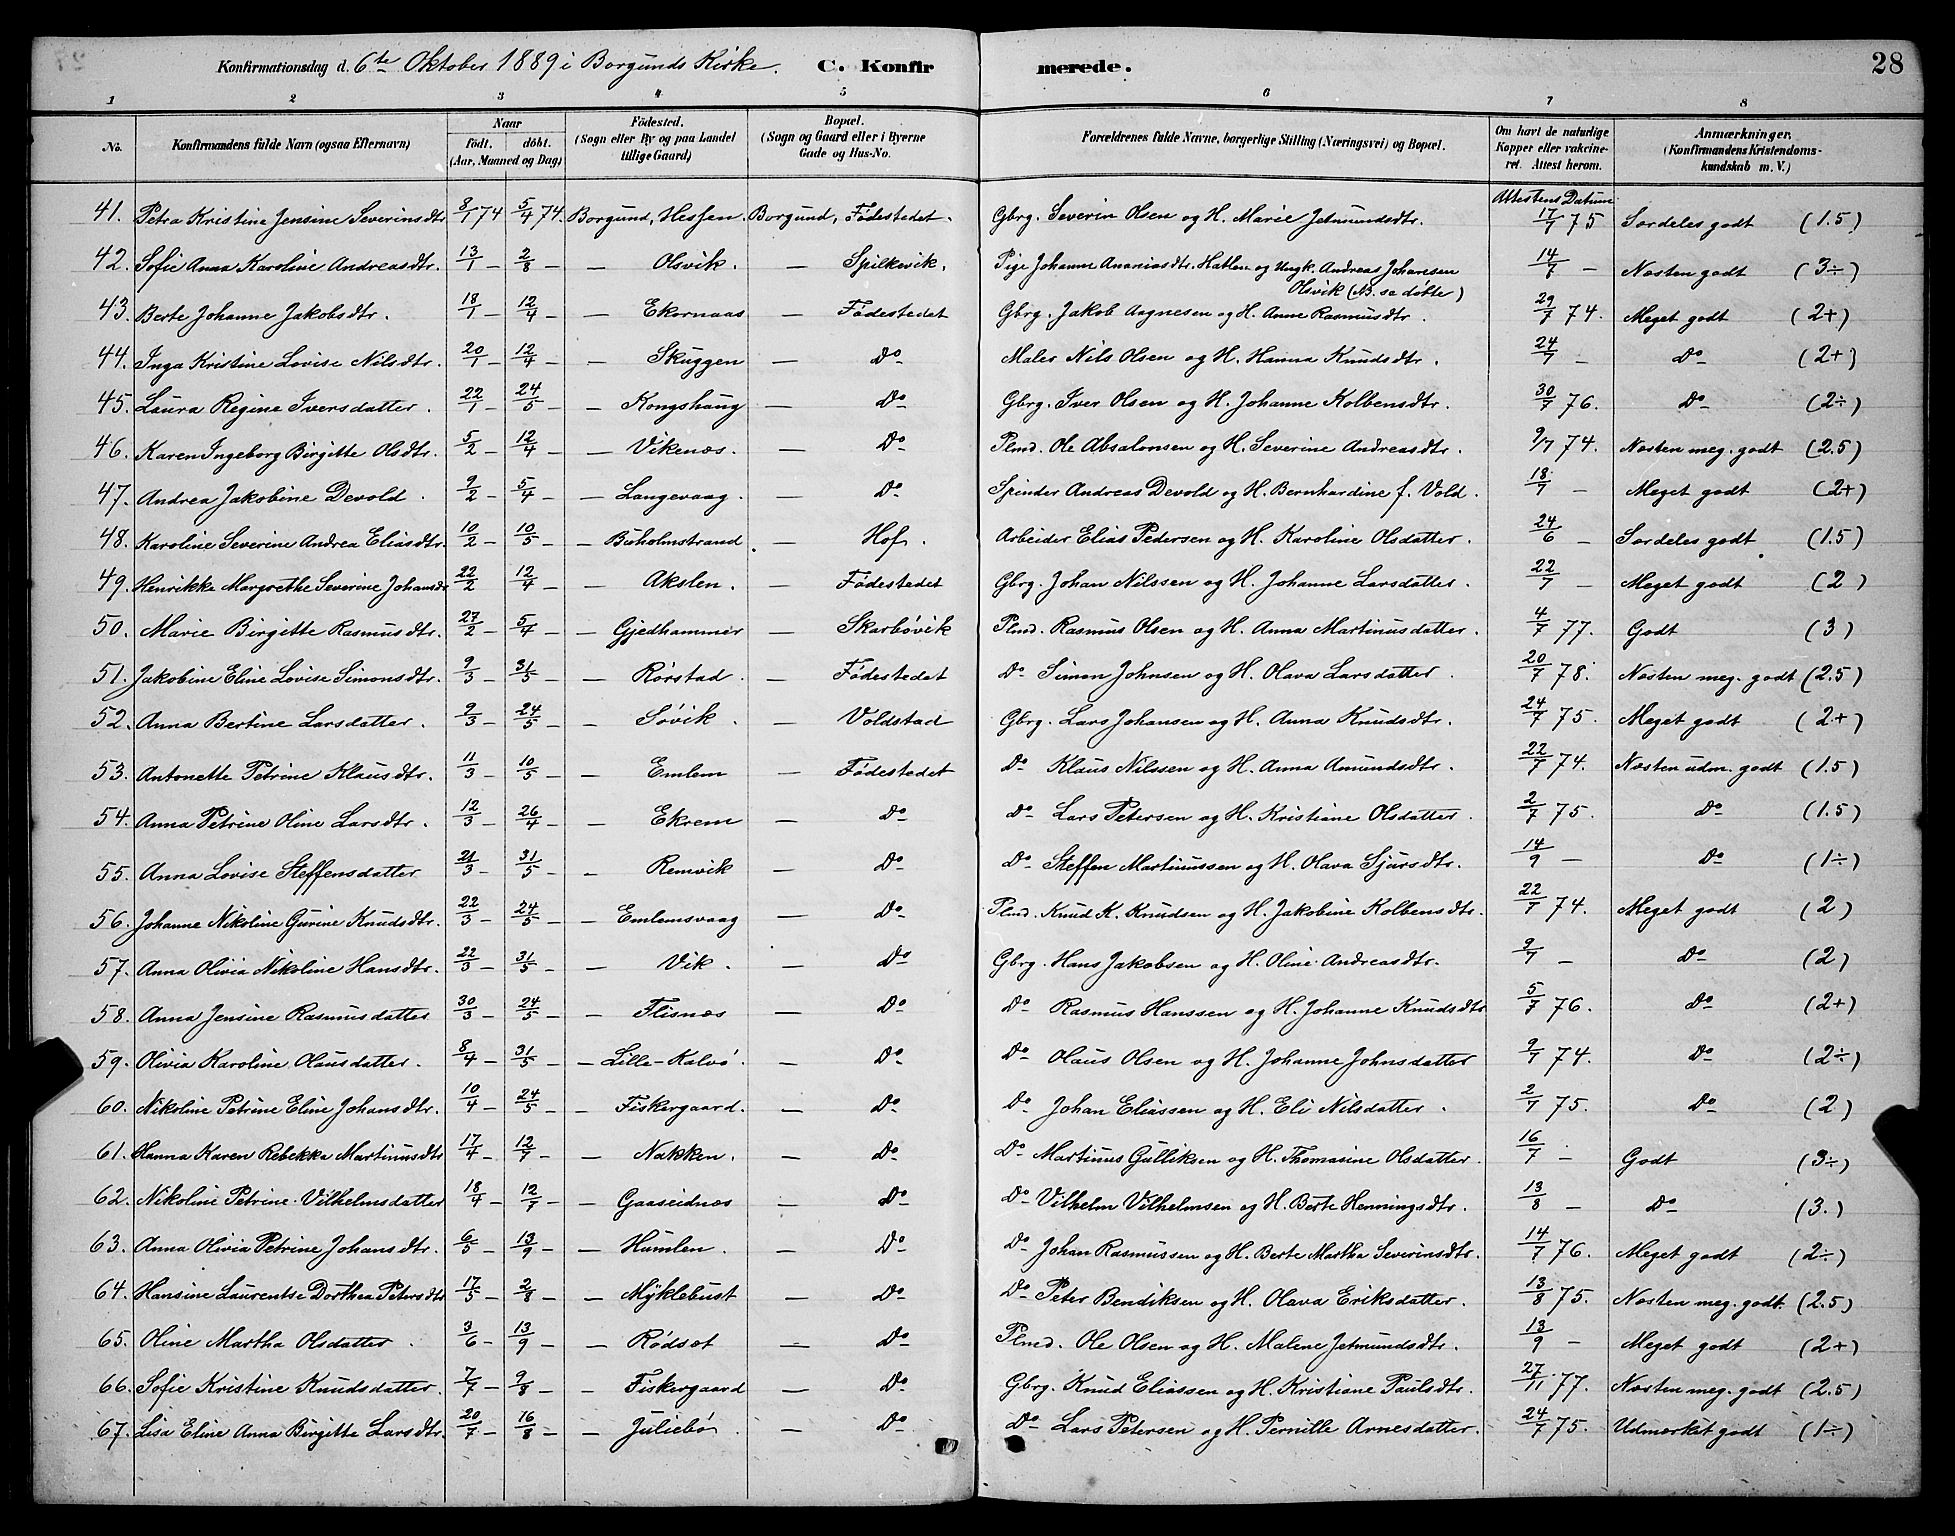 Konfirmationsdag d. 6te Oktober 1889 i Borgunds Kirke. C. Konfirmerede. 28
1 2 3 4 5 6 7 8
No. Konfirmandens fulde Navn (ogsaa Efternavn) Naar Födt. döbt. (Aar, Maaned og Dag) Födested. (Sogn eller By og paa Landet tillige Gaard) Bopæl. (Sogn og Gaard eller i Byerne Gade og Hus-No. Forældrenes fulde Navne, borgerlige Stilling (Næringsvei) og Bopæl. Om havt de naturlige Kopper eller vakcineret. Attest herom. Anmærkninger, (Konfirmandens Kristendomskundskab m. V.)
Attestens Datum
41. Petra Kristine Jensine Severinsdtr. 8/1 74 5/4 74. Borgund, Hessen. Borgund, Fødestedet. Gbrg. Severin Olsen og H. Marie Jetmundsdtr. 17/7 75 Særdeles godt (1.5)
42. Sofie Anna Karoline Andreasdtr. 13/1 – 2/8 – – Olsvik. – Spilkevik. Pige Johanne Ananiasdtr. Hatlen og Ungk. Andreas Johansen Olsvik (NB. se døbte) 14/7 – Næsten godt (3÷)
43. Berte Johanne Jakobsdtr. 18/1 – 12/4 – – Ekornaas – Fødestedet Gbrg. Jakob Aagnesen og H. Anne Rasmusdtr. 29/7 74. Meget godt (2+)
44. Inga Kristine Lovise Nilsdtr. 20/1 – 12/4 – – Skuggen – Do Maler Nils Olsen og H. Hanna Knudsdtr. 24/7 – Do (2+)
45. Laura Regine Iversdatter. 22/1 – 24/5 – – Kongshaug – Do Gbrg. Iver Olsen og H. Johanne Kolbensdtr. 30/7 76. Do (2÷)
46. Karen Ingeborg Birgitte Olsdtr. 5/2 – 12/4 – – Vikenæs. – Do Plmd. Ole Absalonsen og H. Severine Andreasdtr. 9/7 74. Næsten meg. godt (2.5)
47. Andrea Jakobine Devold. 9/2 – 5/4 – – Langevaag. – Do Spinder Andreas Devold og H. Bernhardine f. Vold. 18/7 – Meget godt (2+)
48. Karoline Severine Andrea Eliasdtr. 10/2 – 10/5 – – Buholmstrand – Hof. Arbeider Elias Pedersen og H. Karoline Olsdatter. 24/6 – Særdeles godt (1.5)
49. Henrikke Margrethe Severine Johansdtr 22/2 12/4 – – Akslen. – Fødestedet Gbrg. Johan Nilssen og H. Johanne Larsdatter. 22/7 – Meget godt (2)
50. Marie Birgitte Rasmusdtr. 27/2 – 5/4 – – Gjedhammer – Skarbøvik Plmd. Rasmus Olsen og H. Anna Martinusdatter. 4/7 77. Godt (3)
51. Jakobine Eline Lovise Simonsdtr. 9/3 – 31/5 – – Rørstad. – Fødestedet Do Simon Johnsen og H. Olava Larsdatter. 20/7 78. Næsten meg. godt (2.5)
52. Anna Bertine Larsdatter. 9/3 – 24/5 – – Søvik. – Voldstad Gbrg. Lars Johansen og H. Anna Knudsdtr. 24/7 75. Meget godt (2+)
53. Antonette Petrine Klausdtr. 11/3 – 10/5 – – Emlem – Fødestedet Do Klaus Nilssen og H. Anna Amundsdtr. 22/7 74. Næsten udm. godt (1.5)
54. Anna Petrine Oline Larsdtr. 12/3 – 26/4 – – Ekrem – Do Do Lars Petersen og H. Kristiane Olsdatter. 2/7 75. Do (1.5)
55. Anna Lovise Steffensdatter 21/3 – 31/5 – – Remvik – Do Do Steffen Martinussen og H. Olava Sjursdtr. 14/9 – Do (1÷)
56. Johanne Nikoline Gurine Knudsdtr. 22/3 – 24/5 – – Emlemsvaag – Do Plmd. Knud K. Knudsen og H. Jakobine Kolbensdtr. 22/7 74. Meget godt (2)
57. Anna Olivia Nikoline Hansdtr. 22/3 – 31/5 – – Vik. – Do Gbrg. Hans Jakobsen og H. Oline Andreasdtr. 9/7 – Do (2)
58. Anna Jensine Rasmusdatter 30/3 – 24/5 – – Flisnæs – Do Do Rasmus Hanssen og H. Johanne Knudsdtr 5/7 76. Do (2+)
59. Olivia Karoline Olausdatter. 8/4 – 31/5 – – Lille-Kalvø. – Do Do Olaus Olsen og H. Johanne Johnsdatter 9/7 74. Do (2÷)
60. Nikoline Petrine Eline Johansdtr. 10/4 – 24/5 – – Fiskergaard. – Do Do Johan Eliassen og H. Eli Nilsdatter. 2/7 75. Do (2)
61. Hanna Karen Rebekka Martinusdtr 17/4 – 12/7 – – Nakken. – Do Do Martinus Gulliksen og H. Thomasine Olsdatter. 16/7 – Godt (3÷)
62. Nikoline Petrine Vilhelmsdatter 18/4 – 12/7 – – Gaaseidnæs – Do Do Vilhelm Vilhelmsen og H. Berte Henningsdtr. 13/8 – Do (3.)
63. Anna Olivia Petrine Johansdtr. 6/5 – 13/9 – – Humlen. – Do Do Johan Rasmussen og H. Berte Martha Severinsdtr. 14/7 76. Meget godt (2÷)
64. Hansine Laurentse Dorthea Petersdtr 17/5 – 2/8 – – Myklebust – Do Do Peter Bendiksen og H. Olava Eriksdatter. 13/8 75. Næsten meg. godt. (2.5)
65. Oline Martha Olsdatter. 3/6 – 13/9 – – Rødsæt – Do Plmd. Ole Olsen og H. Malene Jetmundsdtr. 13/9 – Meget godt (2+)
66. Sofie Kristine Knudsdatter. 7/7 – 9/8 – – Fiskergaard – Do Gbrg. Knud Eliassen og H. Kristiane Paulsdtr. 27/11 77. Næsten meg. godt (2.5)
67. Lisa Eline Anna Birgitte Larsdtr. 20/7 – 16/8 – – Juliebø. – Do Do Lars Petersen og H. Pernille Arnesdatter. 24/7 75. Udmærket godt (1÷)